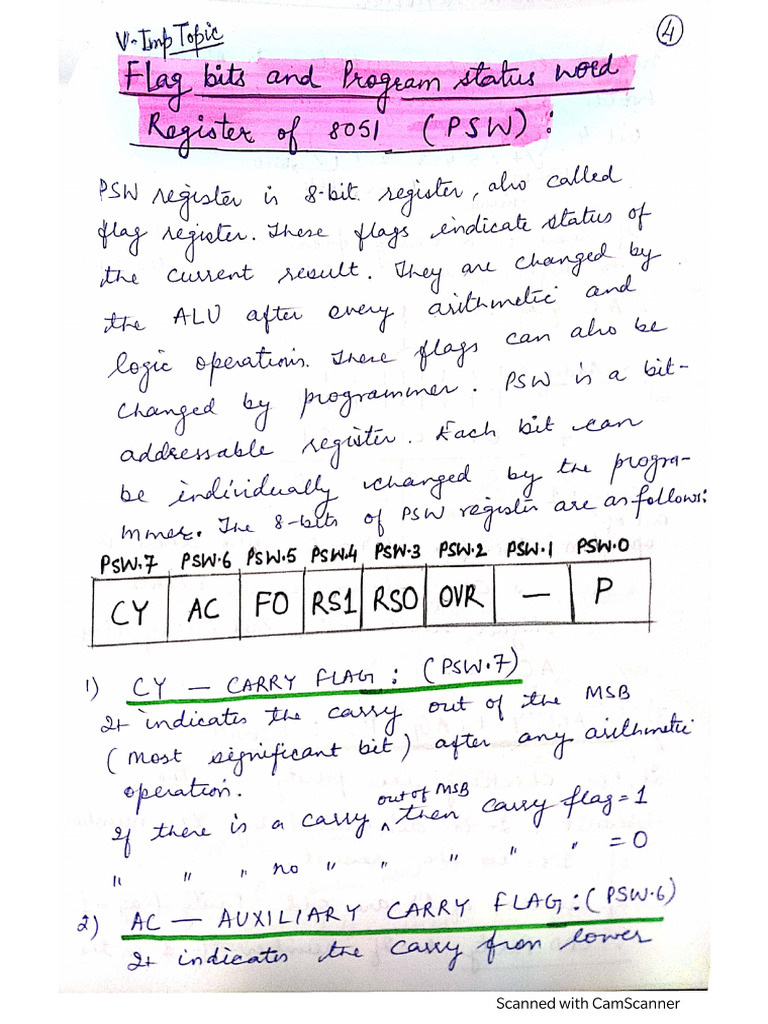 V-Imp Topic
4
Flag bits and Program status word
Register of 8051 (PSW) :
PSW register is 8-bit register, also called
flag register. These flags indicate status of
the current result. They are changed by
the ALU after every arithmetic and
logic operations. These flags can also be
changed by programmer. PSW is a bit-
addressable register. Each bit can
be individually changed by the progra-
mmer. The 8-bits of PSW register are as follows:
PSW.7 PSW.6 PSW.5 PSW.4 PSW.3 PSW.2 PSW.1 PSW.0
CY AC F0 RS1 RS0 OVR — P
1) CY — CARRY FLAG : (PSW.7)
It indicates the carry out of the MSB
(most significant bit) after any arithmetic
operation.
If there is a carry ^ out of MSB then carry flag = 1
" " " no " " " " " = 0
2) AC — AUXILIARY CARRY FLAG : (PSW.6)
It indicates the carry from lower
Scanned with CamScanner